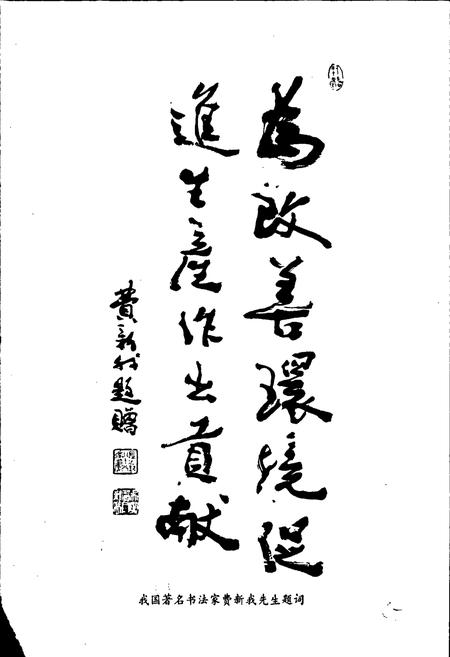 为改善環境促
進生產作出貢献
費新我題贈
我国著名书法家费新我先生题词